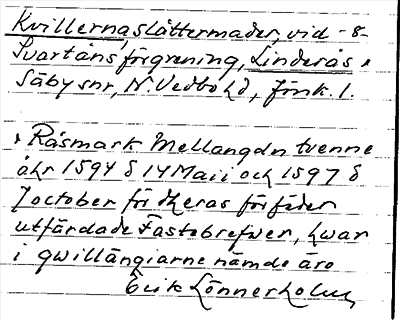 Kvillerna, slåttermader, vid -8-
Svartåns förgrening, Linderås &
Säby snr, N. Vedbo hd, Jönk. l.
Råsmark Mellangdn tvenne
åhr 1594 d 14 Maii och 1597 d
7 october för theras förfäder
utfärdade Fastebrefwer, hwar
i qwillängiarne nämde äro
Erik Lönnerholm